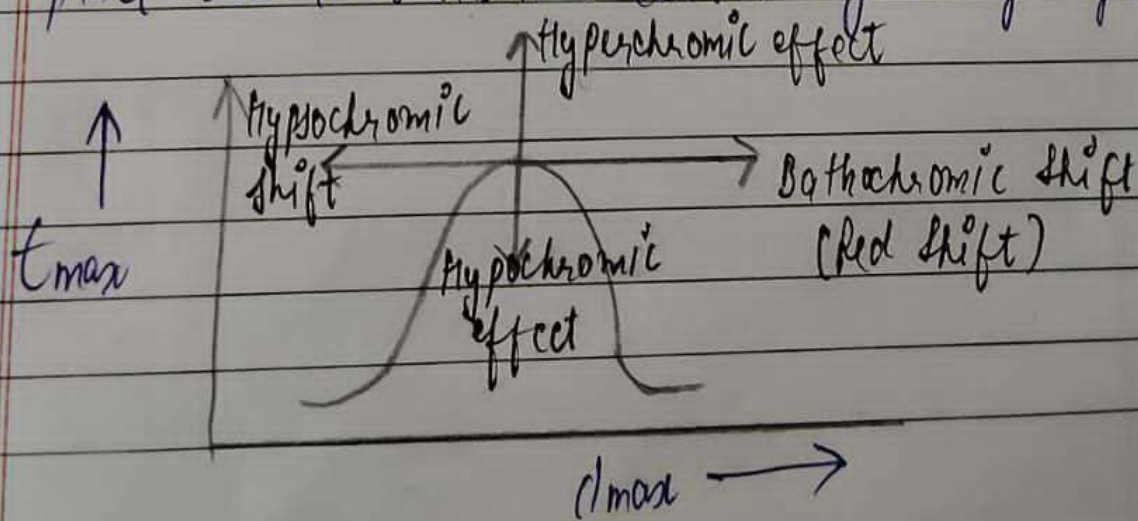 Hyperchromic effect
Hypsochromic
shift
Bathochromic shift
(Red shift)
Hypochromic
effect
εmax
λmax